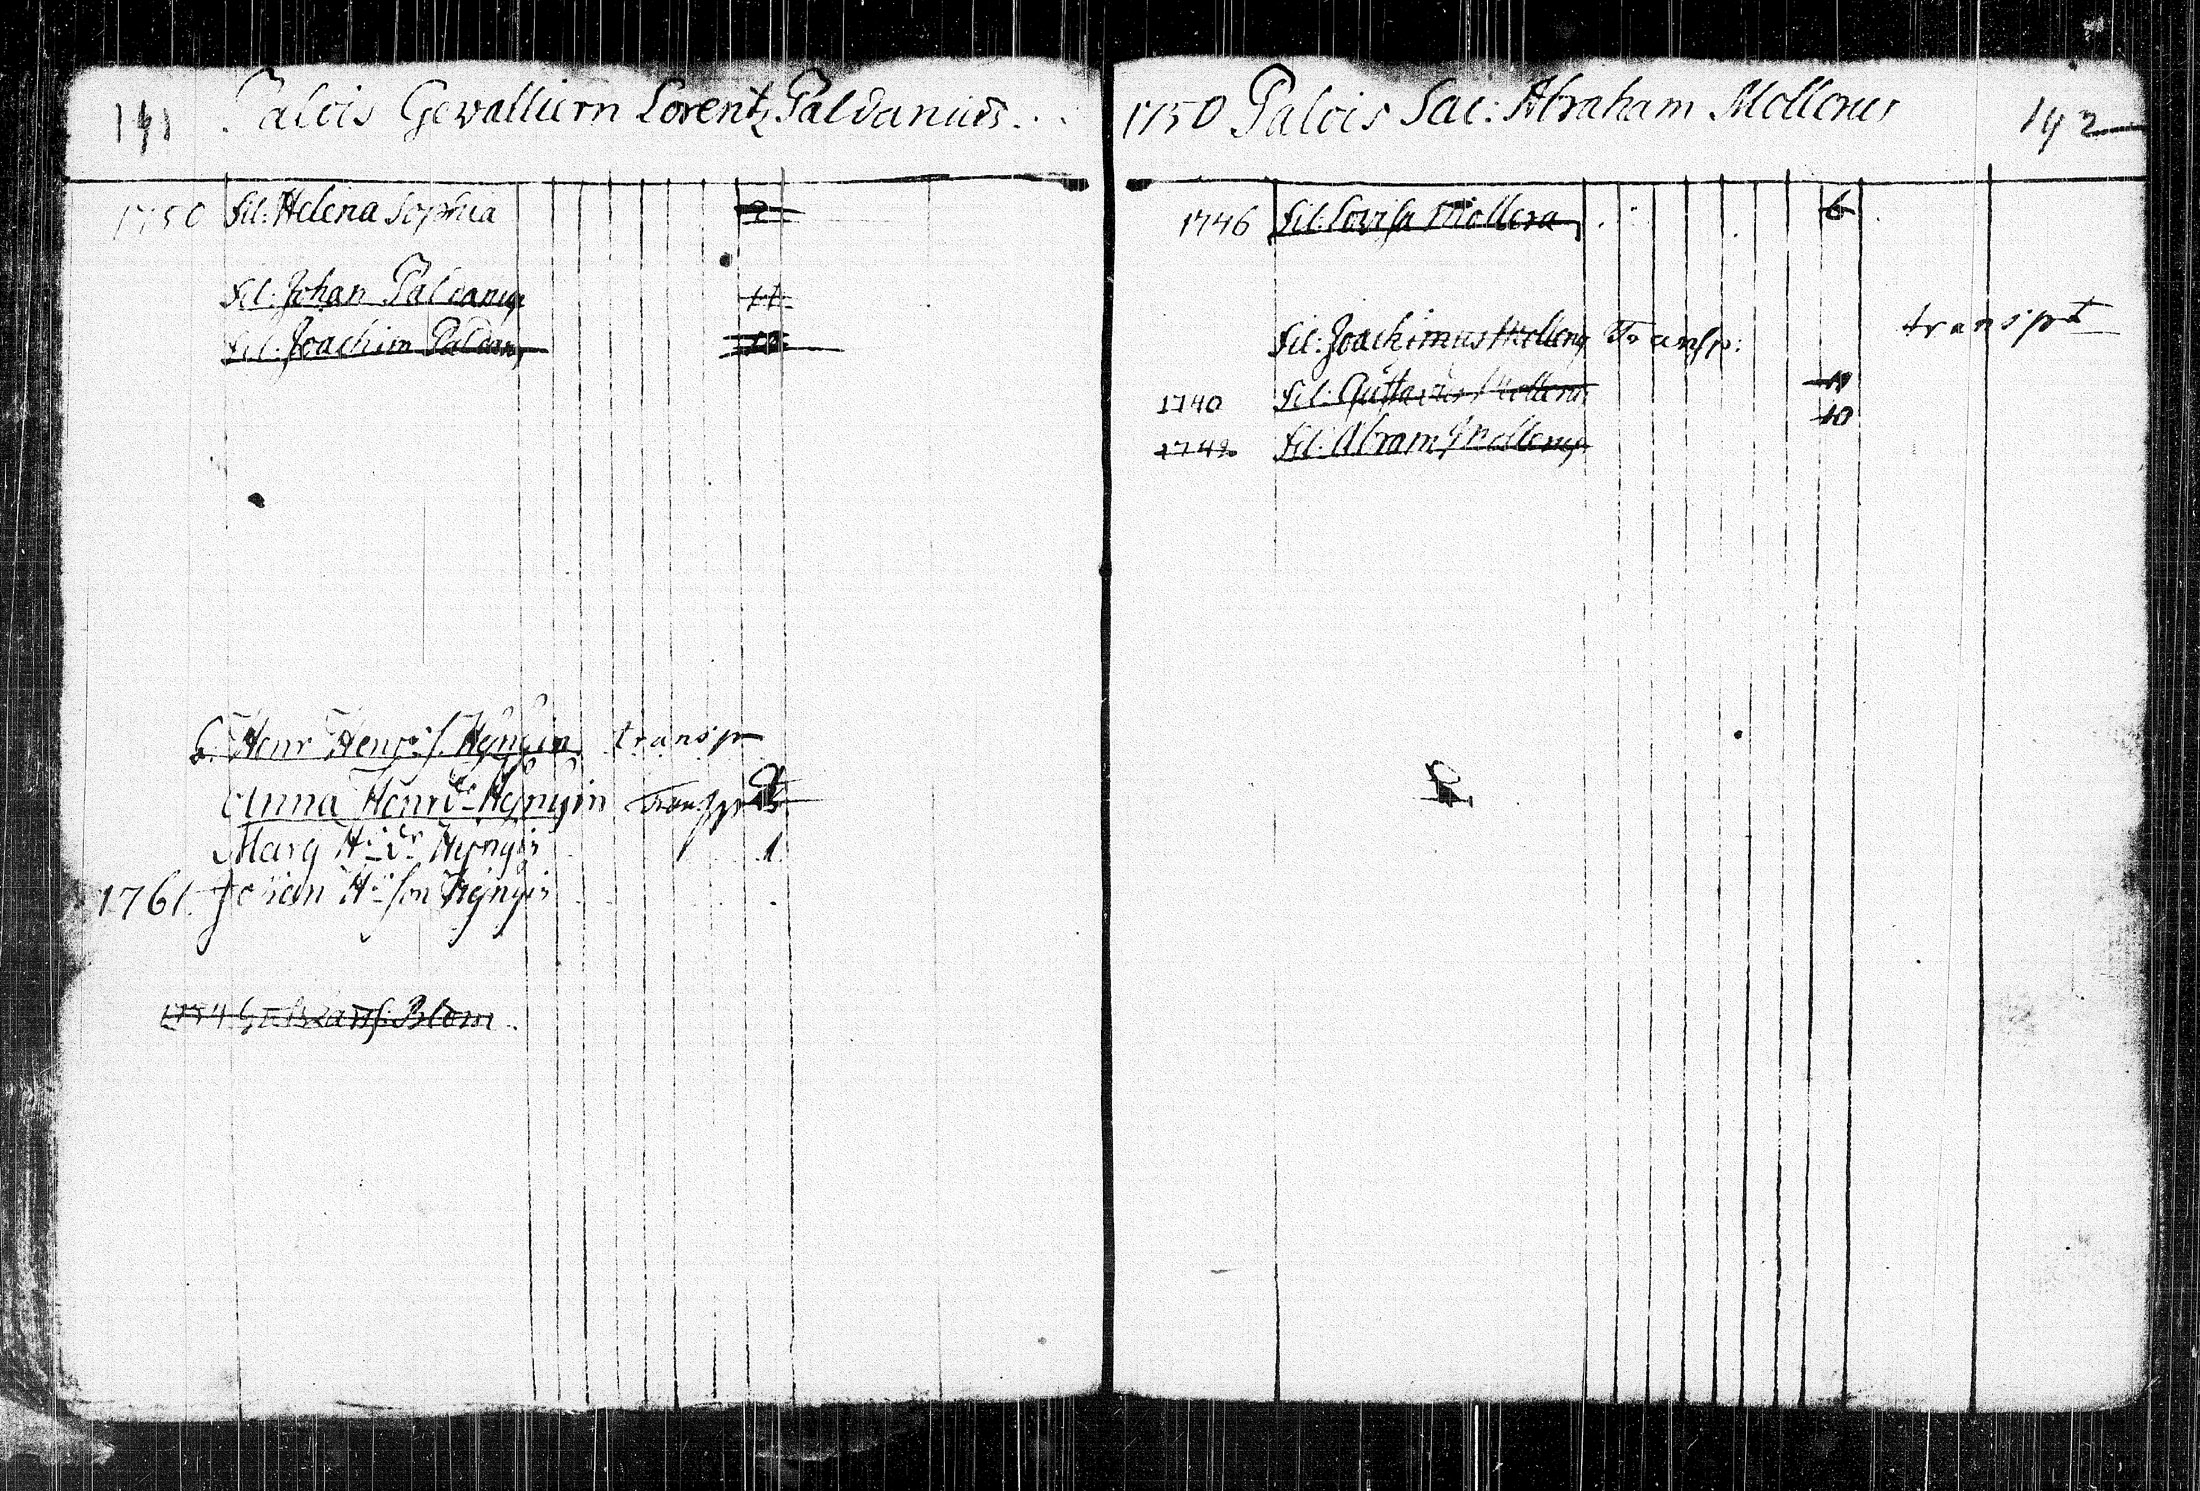 191 Palcis Gevalliern Lorentz Paldanius
1750 fil: Helena Sophia 2
fil: Johan Paldanus 11
fil: Joachim Paldanus
Henr Henr: s. Hynyin transp
Anna Henr dr Hynyin Transp
Marg H: dr Hynyin 1
1761 Johan H: son Hynyin
1754 Blom
1750 Palcis Sac: Abraham Mollerus 192
1746 fil: Lovisa Mollera 6
fil: Joachimus Mollerus Transp: transpt
1740 fil: Gustavus Mollerus
1742 fil: Abram Mollerus 10